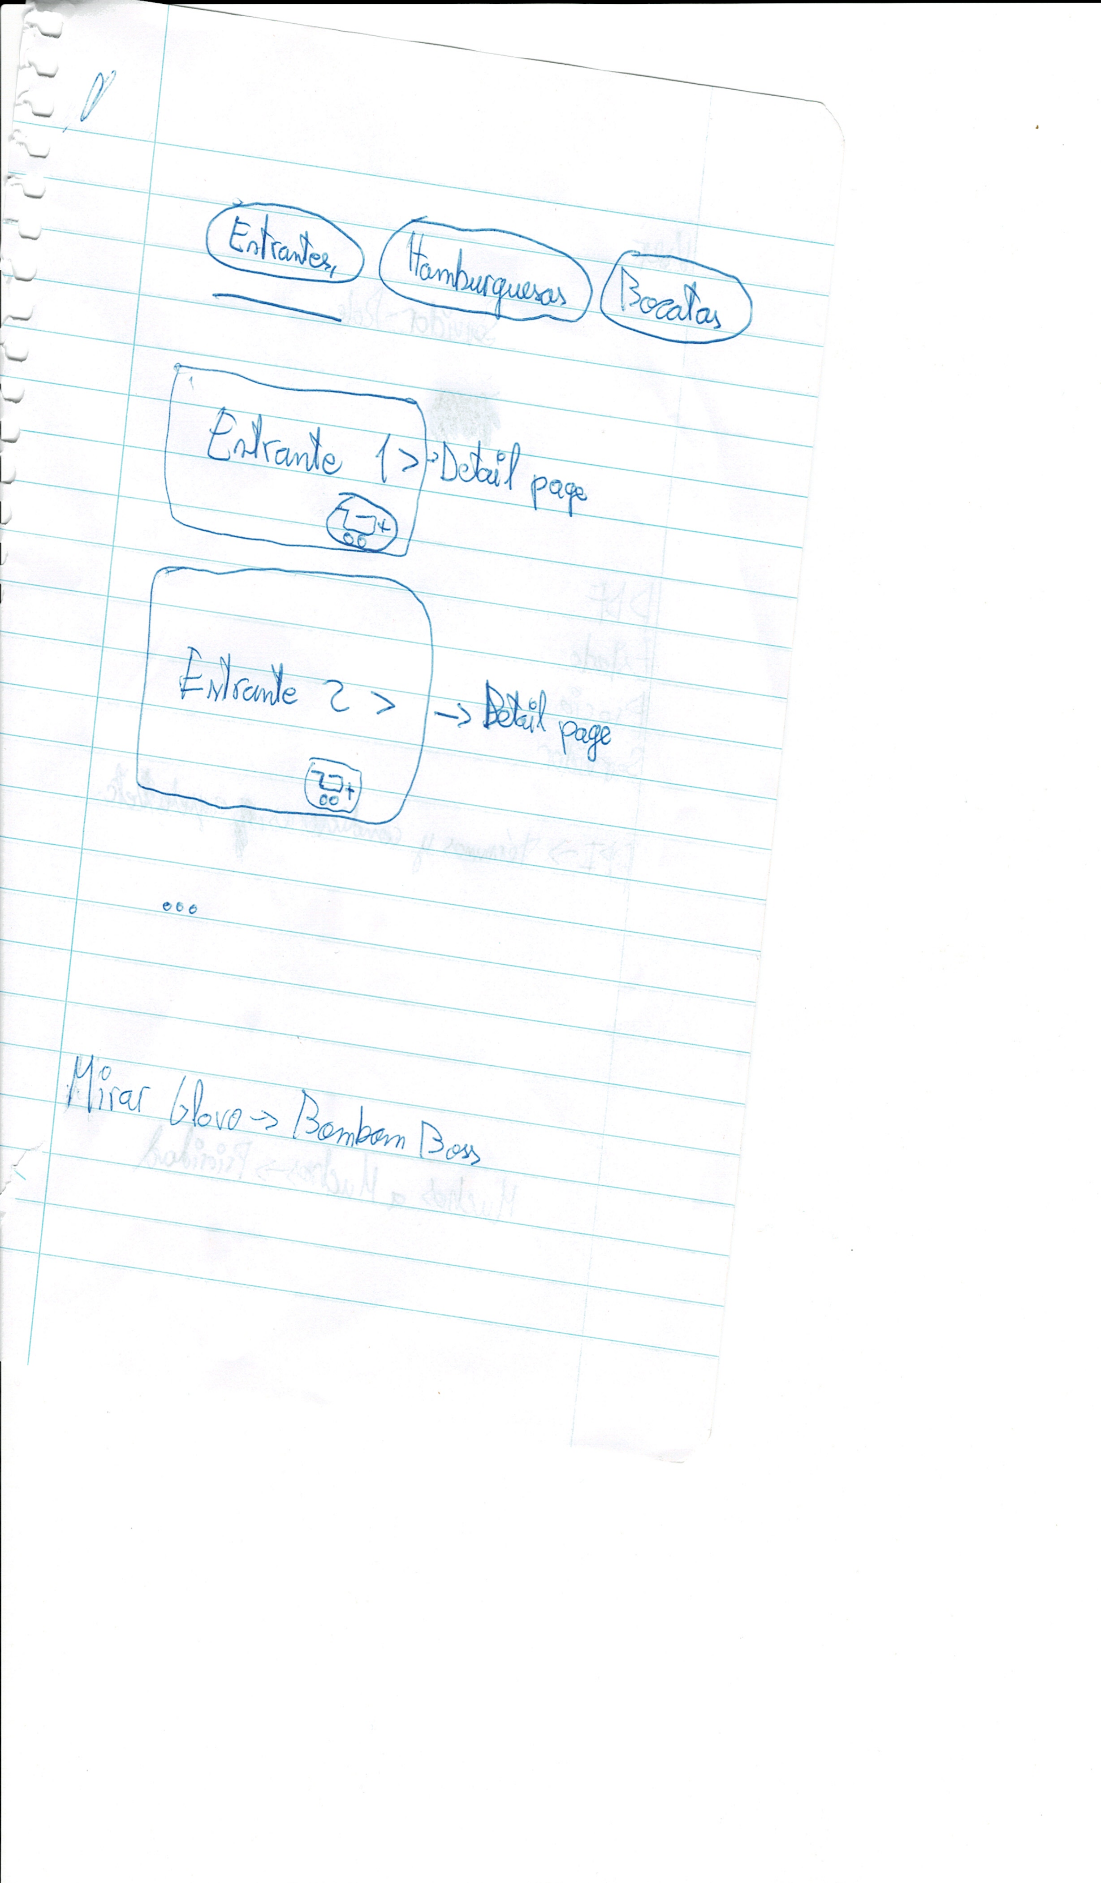 Entrantes, Hamburguesas Bocatas
Entrante 1 > → Detail page
Entrante 2 > → Detail page
...
Mirar Glovo → Bombom Boss